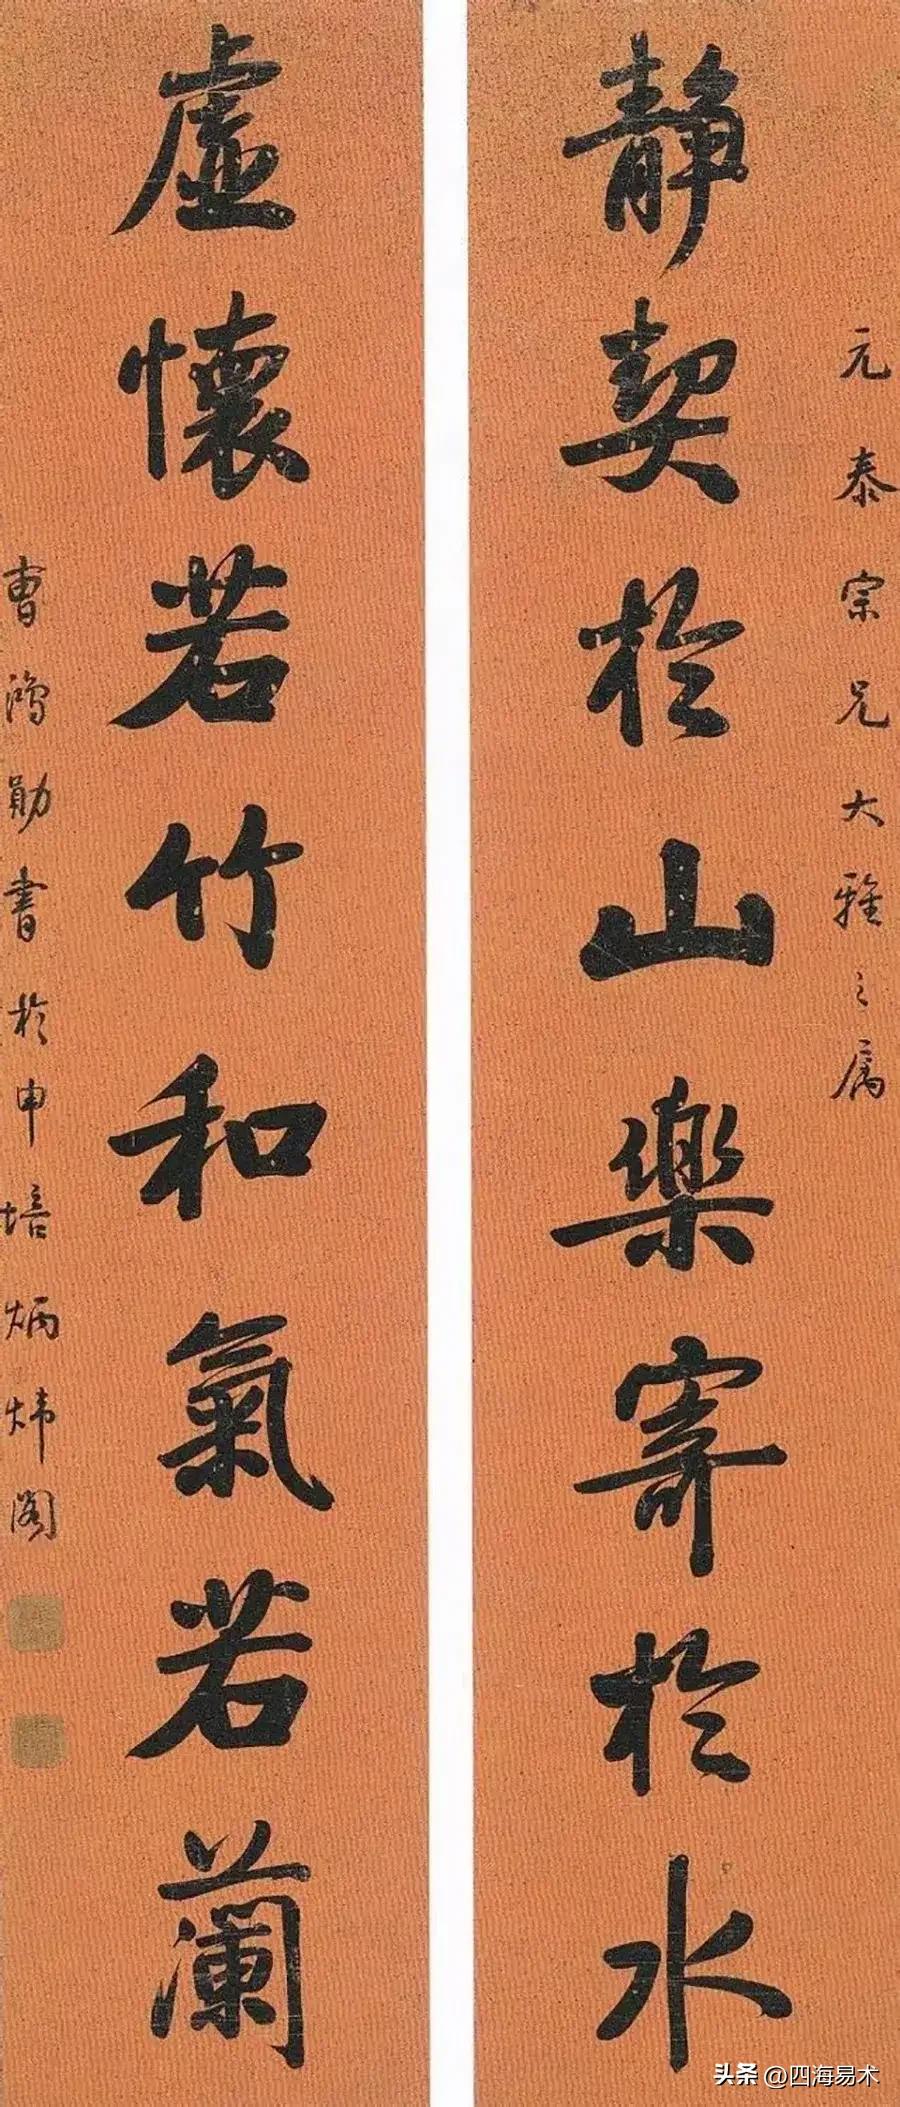 元泰宗兄大雅之属
静契於山樂寄於水
虛懷若竹和氣若蘭
曹鴻勛書於申培炳炜阁
头条 @四海易术